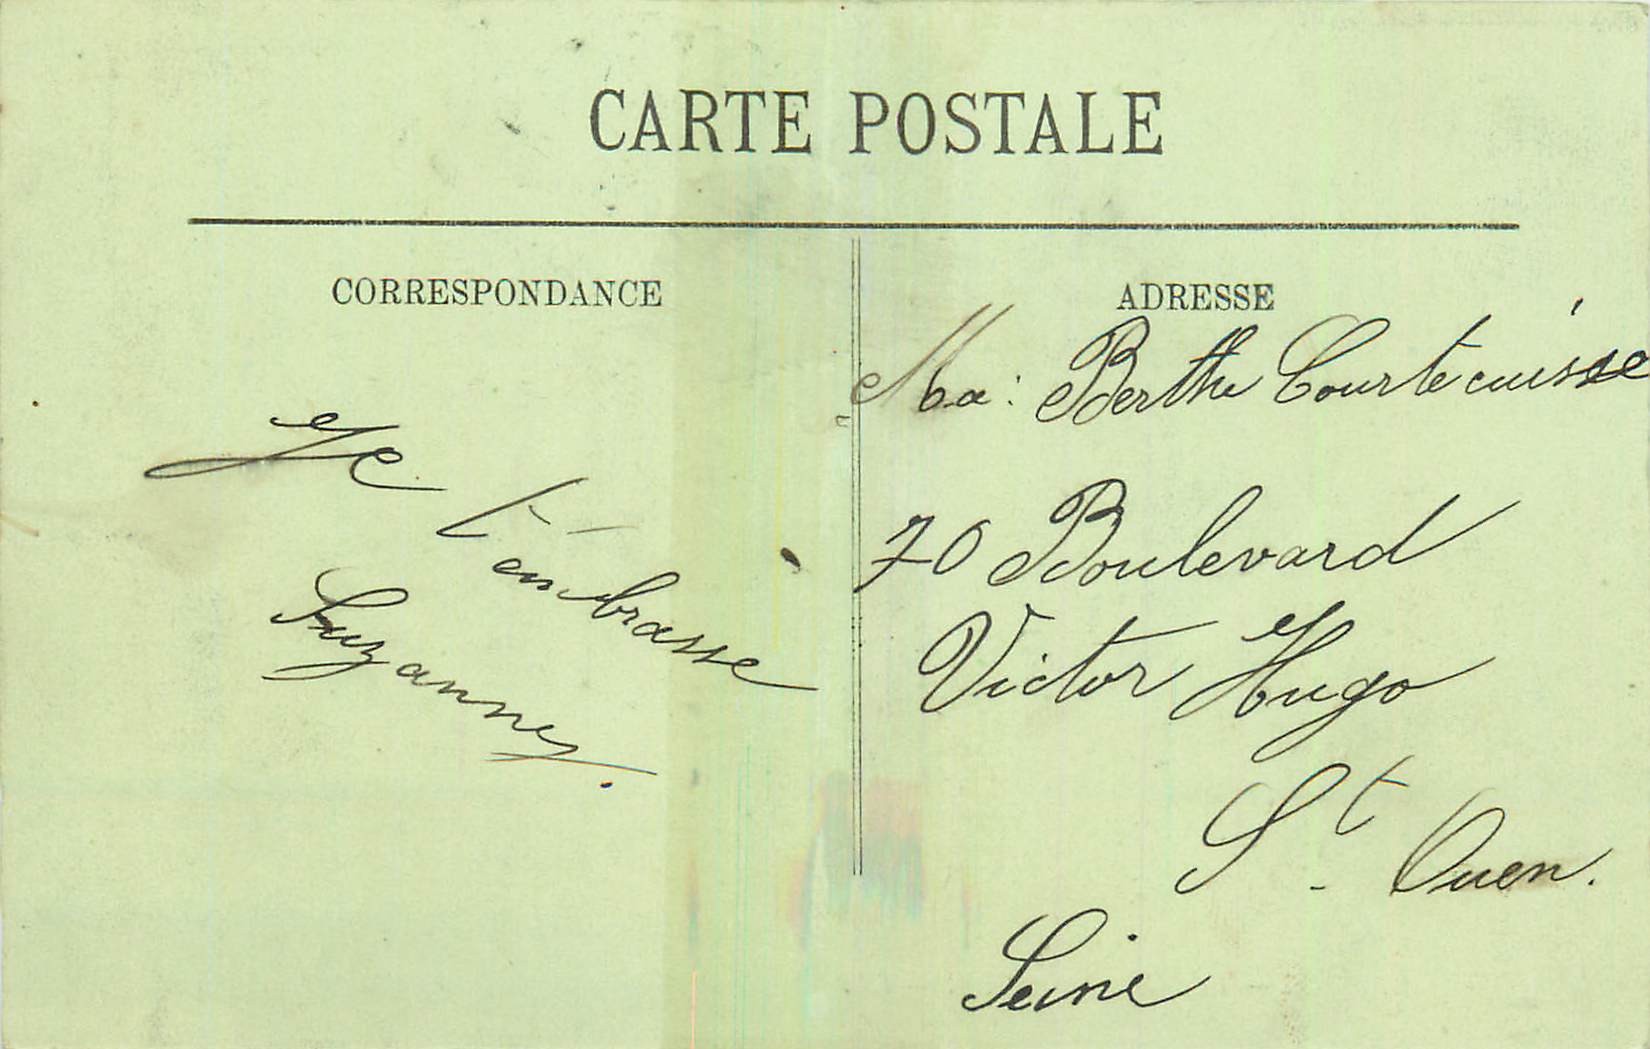 CARTE POSTALE
CORRESPONDANCE
Je t'embrasse
Suzanne.
ADRESSE
Berthe Courtecuisse
70 Boulevard
Victor Hugo
St Ouen.
Seine